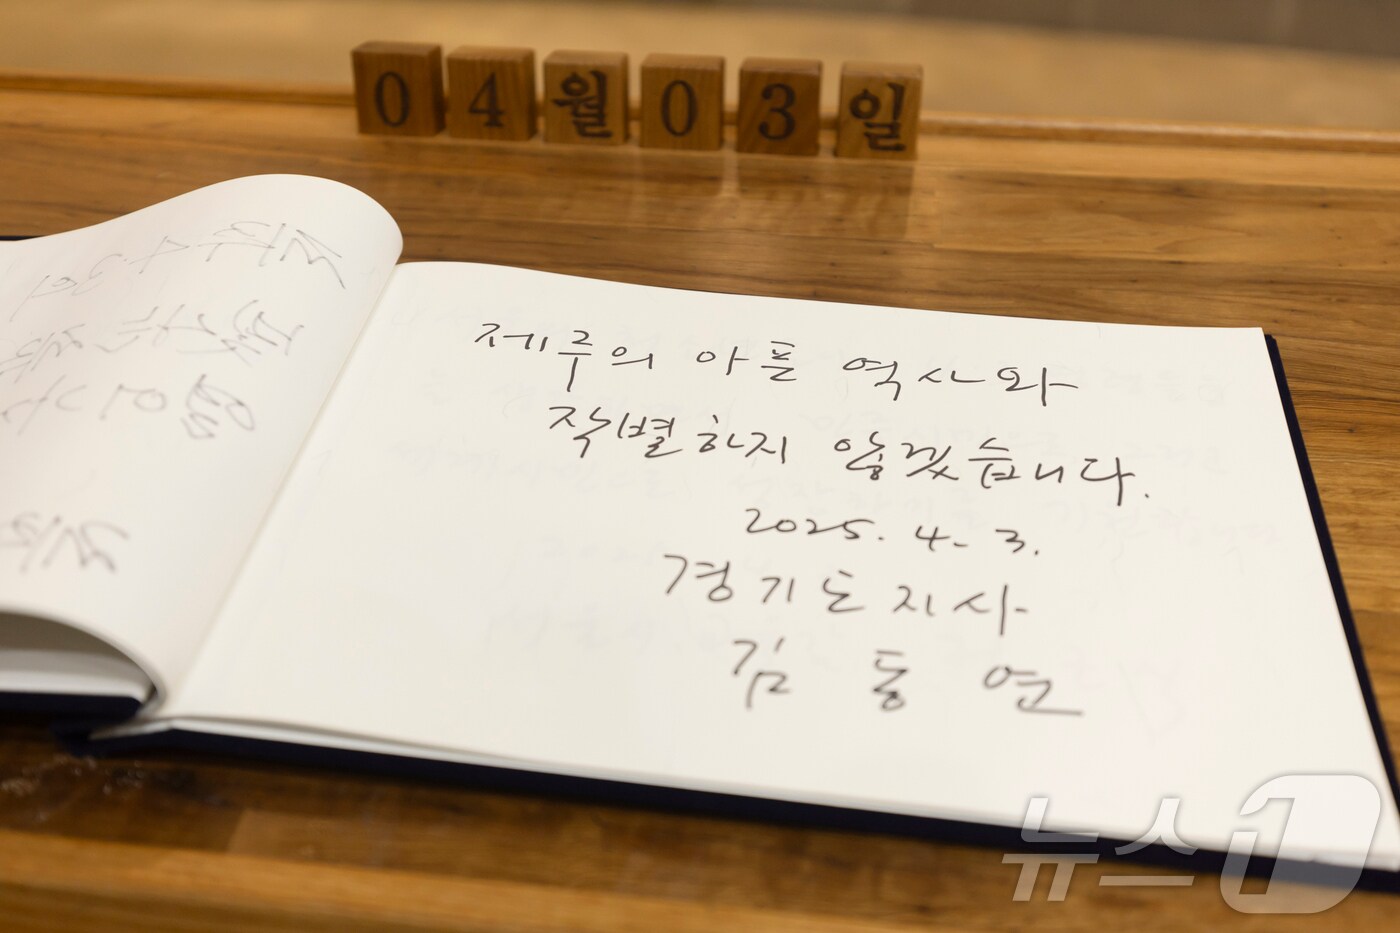 04월03일
제주의 아픈 역사와
작별하지 않겠습니다.
2025. 4. 3.
경기도지사
김 동 연
뉴스1